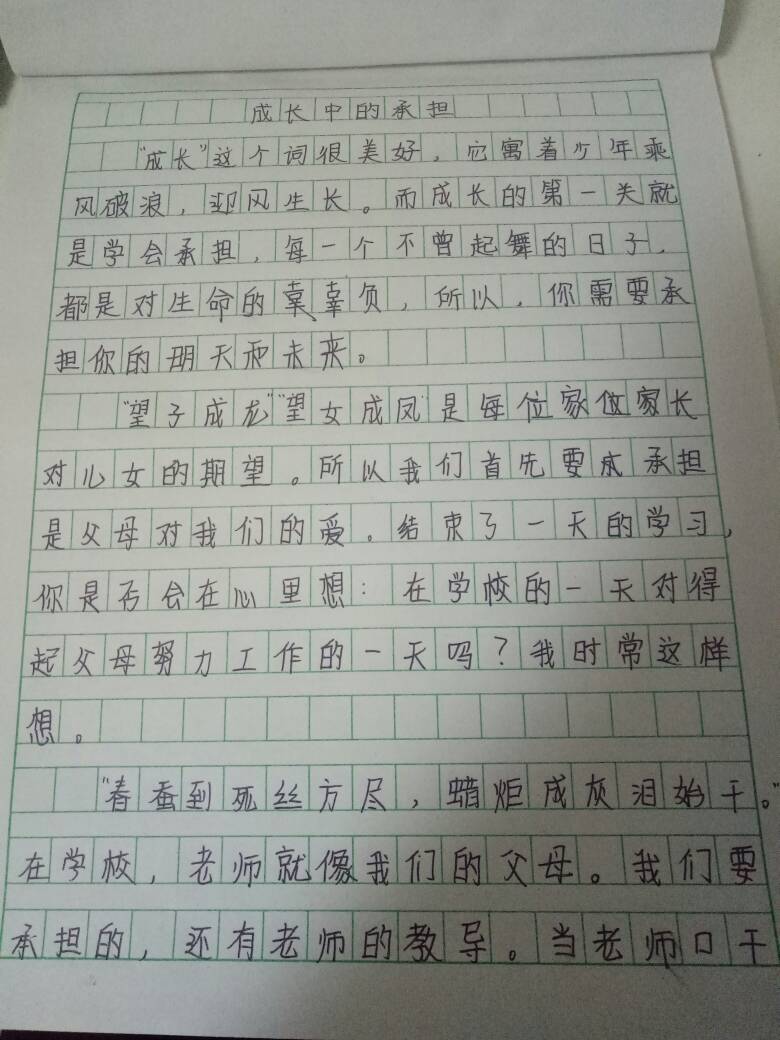 成长中的承担
“成长”这个词很美好，它寓着少年乘
风破浪，迎风生长。而成长的第一关就
是学会承担，每一个不曾起舞的日子，
都是对生命的辜辜负，所以，你需要承
担你的明天和未来。
“望子成龙”“望女成凤”是每位家位家长
对儿女的期望。所以我们首先要承承担
是父母对我们的爱。结束了一天的学习，
你是否会在心里想：在学校的一天对得
起父母努力工作的一天吗？我时常这样
想。
“春蚕到死丝方尽，蜡炬成灰泪始干。”
在学校，老师就像我们的父母。我们要
承担的，还有老师的教导。当老师口干